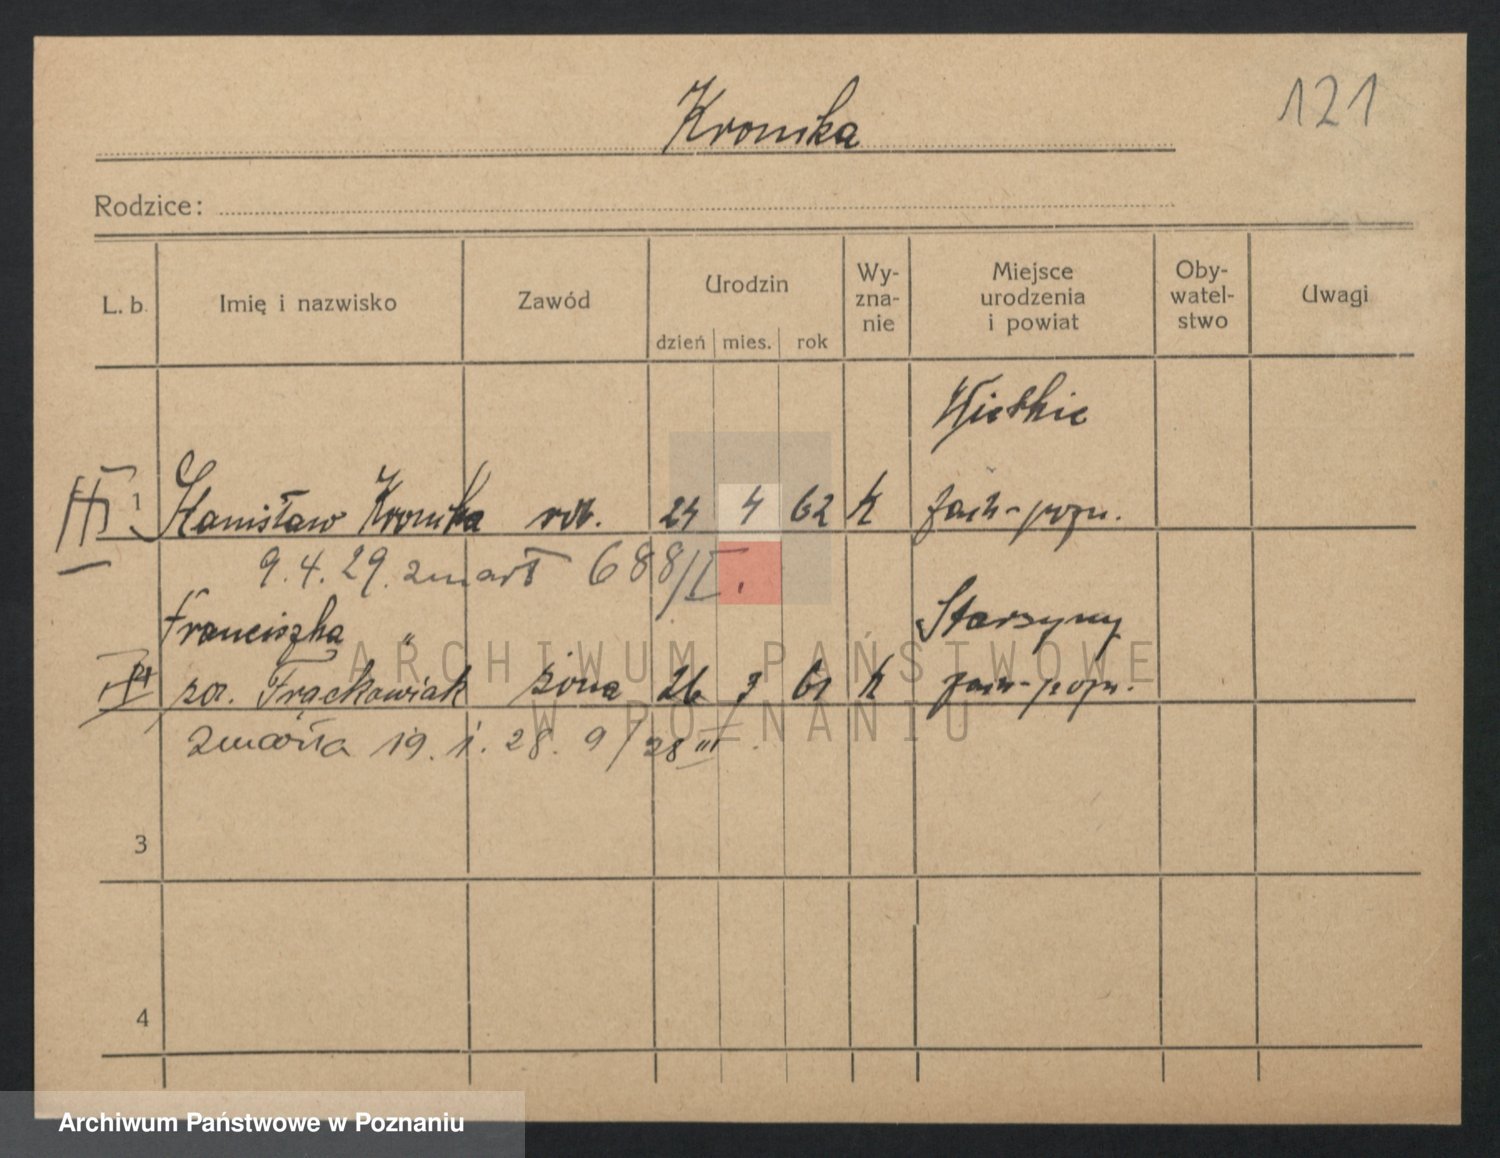 121
Kronika
Rodzice:
L. b.
Imię i nazwisko
Zawód
Urodzin
dzień mies. rok
Wy-
zna-
nie
Miejsce
urodzenia
i powiat
Oby-
watel-
stwo
Uwagi
1 Stanisław Kronika rob. 24 4 62 k
9.4.29. zmarł 688/I.
Franciszka "
Starzyny
zd. Frąckowiak żona 26 3 61 k
zmarła 19. 1. 28. 9/28 III.
3
4
ARCHIWUM PAŃSTWOWE
W POZNANIU
Archiwum Państwowe w Poznaniu